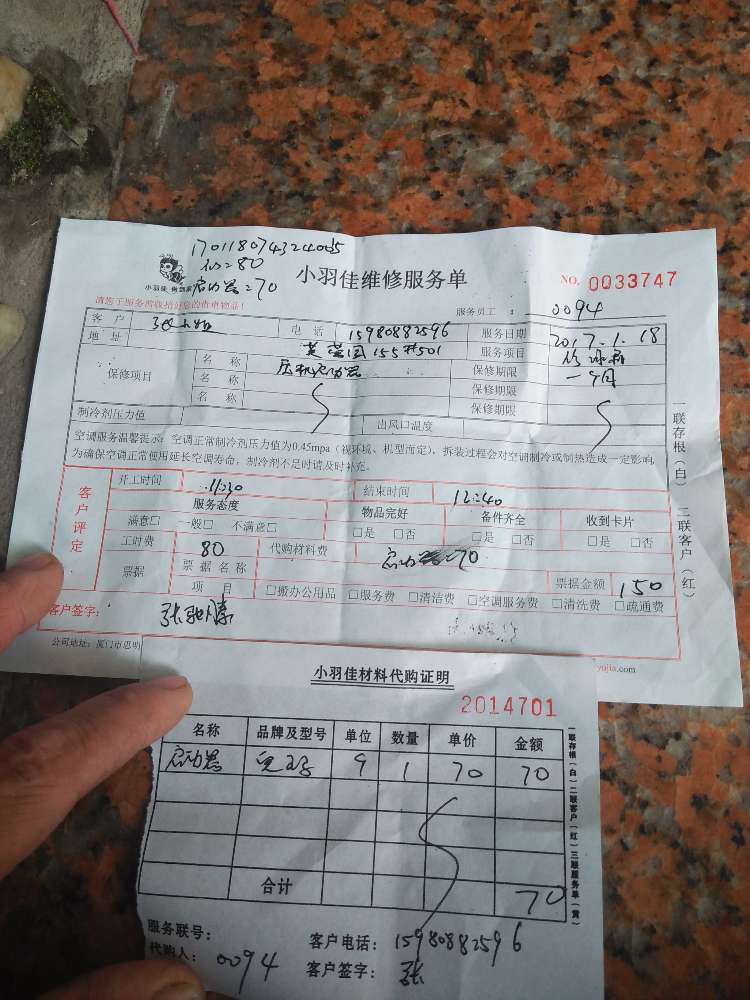 170118074324005
工=80
启动器=70
小羽佳 衡您家
小羽佳维修服务单
NO. 0033747
请您于服务前收拾好您的贵重物品!
服务员工 : 0094
客 户 电 话 15980882596 服务日期 2017.1.18
地 址 501 服务项目
保修项目 名 称 压机启动器 保修期限 一个月
名 称 保修期限
名 称 保修期限
制冷剂压力值 出风口温度
空调服务温馨提示: 空调正常制冷剂压力值为0.45mpa(视环境、机型而定),拆装过程会对空调制冷或制热造成一定影响,
为确保空调正常使用延长空调寿命,制冷剂不足时请及时补充。
客户评定
开工时间 11:30 结束时间 12:40
服务态度 物品完好 备件齐全 收到卡片
满意□ 一般□ 不满意□ □是 □否 □是 □否 □是 □否
工时费 80 代购材料费 启动器=70
票据 票据名称 票据金额 150
项 目 □搬办公用品 □服务费 □清洁费 □空调服务费 □清洗费 □疏通费
客户签字:
公司地址: 厦门市思明
yujia.com
一联存根(白) 二联客户(红)
小羽佳材料代购证明
2014701
名称 品牌及型号 单位 数量 单价 金额
启动器 1 70 70
合计 70
服务联号:
客户电话: 15980882596
代购人: 0094
客户签字: 张
一联存根(白)二联客户(红)三联服务单(黄)